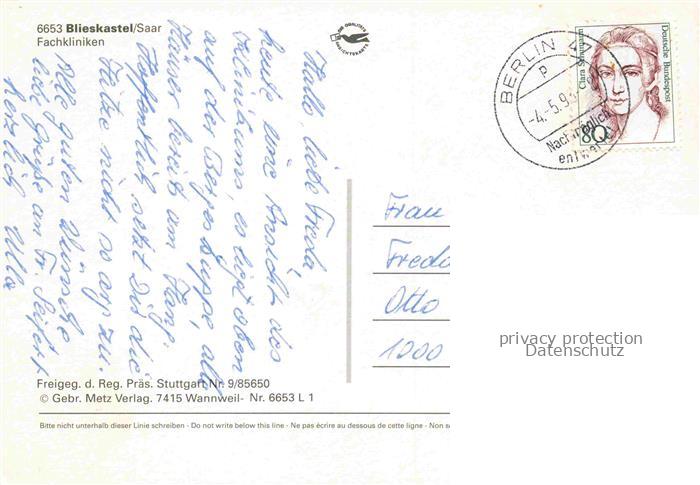 6653 Blieskastel/Saar
Fachkliniken
DIE QUALITÄTS
ANSICHTSKARTE
Hallo, liebe Freda,
heute eine Ansicht des
es liegt oben
auf der Bergkuppe, alle
Häuser bereits am Hang.
Hoffentlich setzt Dir die
Hitze nicht so arg zu.
Alle guten Wünsche
liebe Grüße an Fr. Seifert
herzlich Ulla
BERLIN
P
-4.-5.93
Nachträglich
entwertet
Clara Schumann
Deutsche Bundespost
80
Frau
Freda
Otto
1000
privacy protection
Datenschutz
Freigeg. d. Reg. Präs. Stuttgart Nr. 9/85650
© Gebr. Metz Verlag. 7415 Wannweil- Nr. 6653 L 1
Bitte nicht unterhalb dieser Linie schreiben - Do not write below this line - Ne pas écrire au dessous de cette ligne - Non s